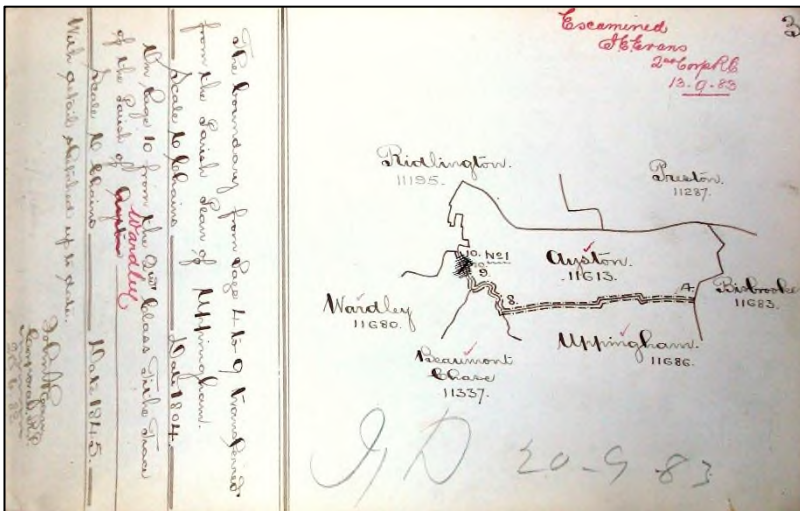 3
Examined
J.E.Evans
2nd Corpl R.E.
13.9.83
Ridlington.
11195.
Preston.
11287.
10. No 1
9.
Ayston.
11613.
Wardley
11680.
8.
4.
Bisbrooke
11683.
Uppingham.
11686.
Beaumont
Chase
11337.
20-9-83
The boundary from Page 4 to 9 transferred
from the Parish Plan of Uppingham.
Scale 10 Chains Date 1804.
On Page 10 from the 2nd Class Tithe Trace
of the Parish of Wardley
Scale 10 Chains Date 1845.
With detail sketched up to date.